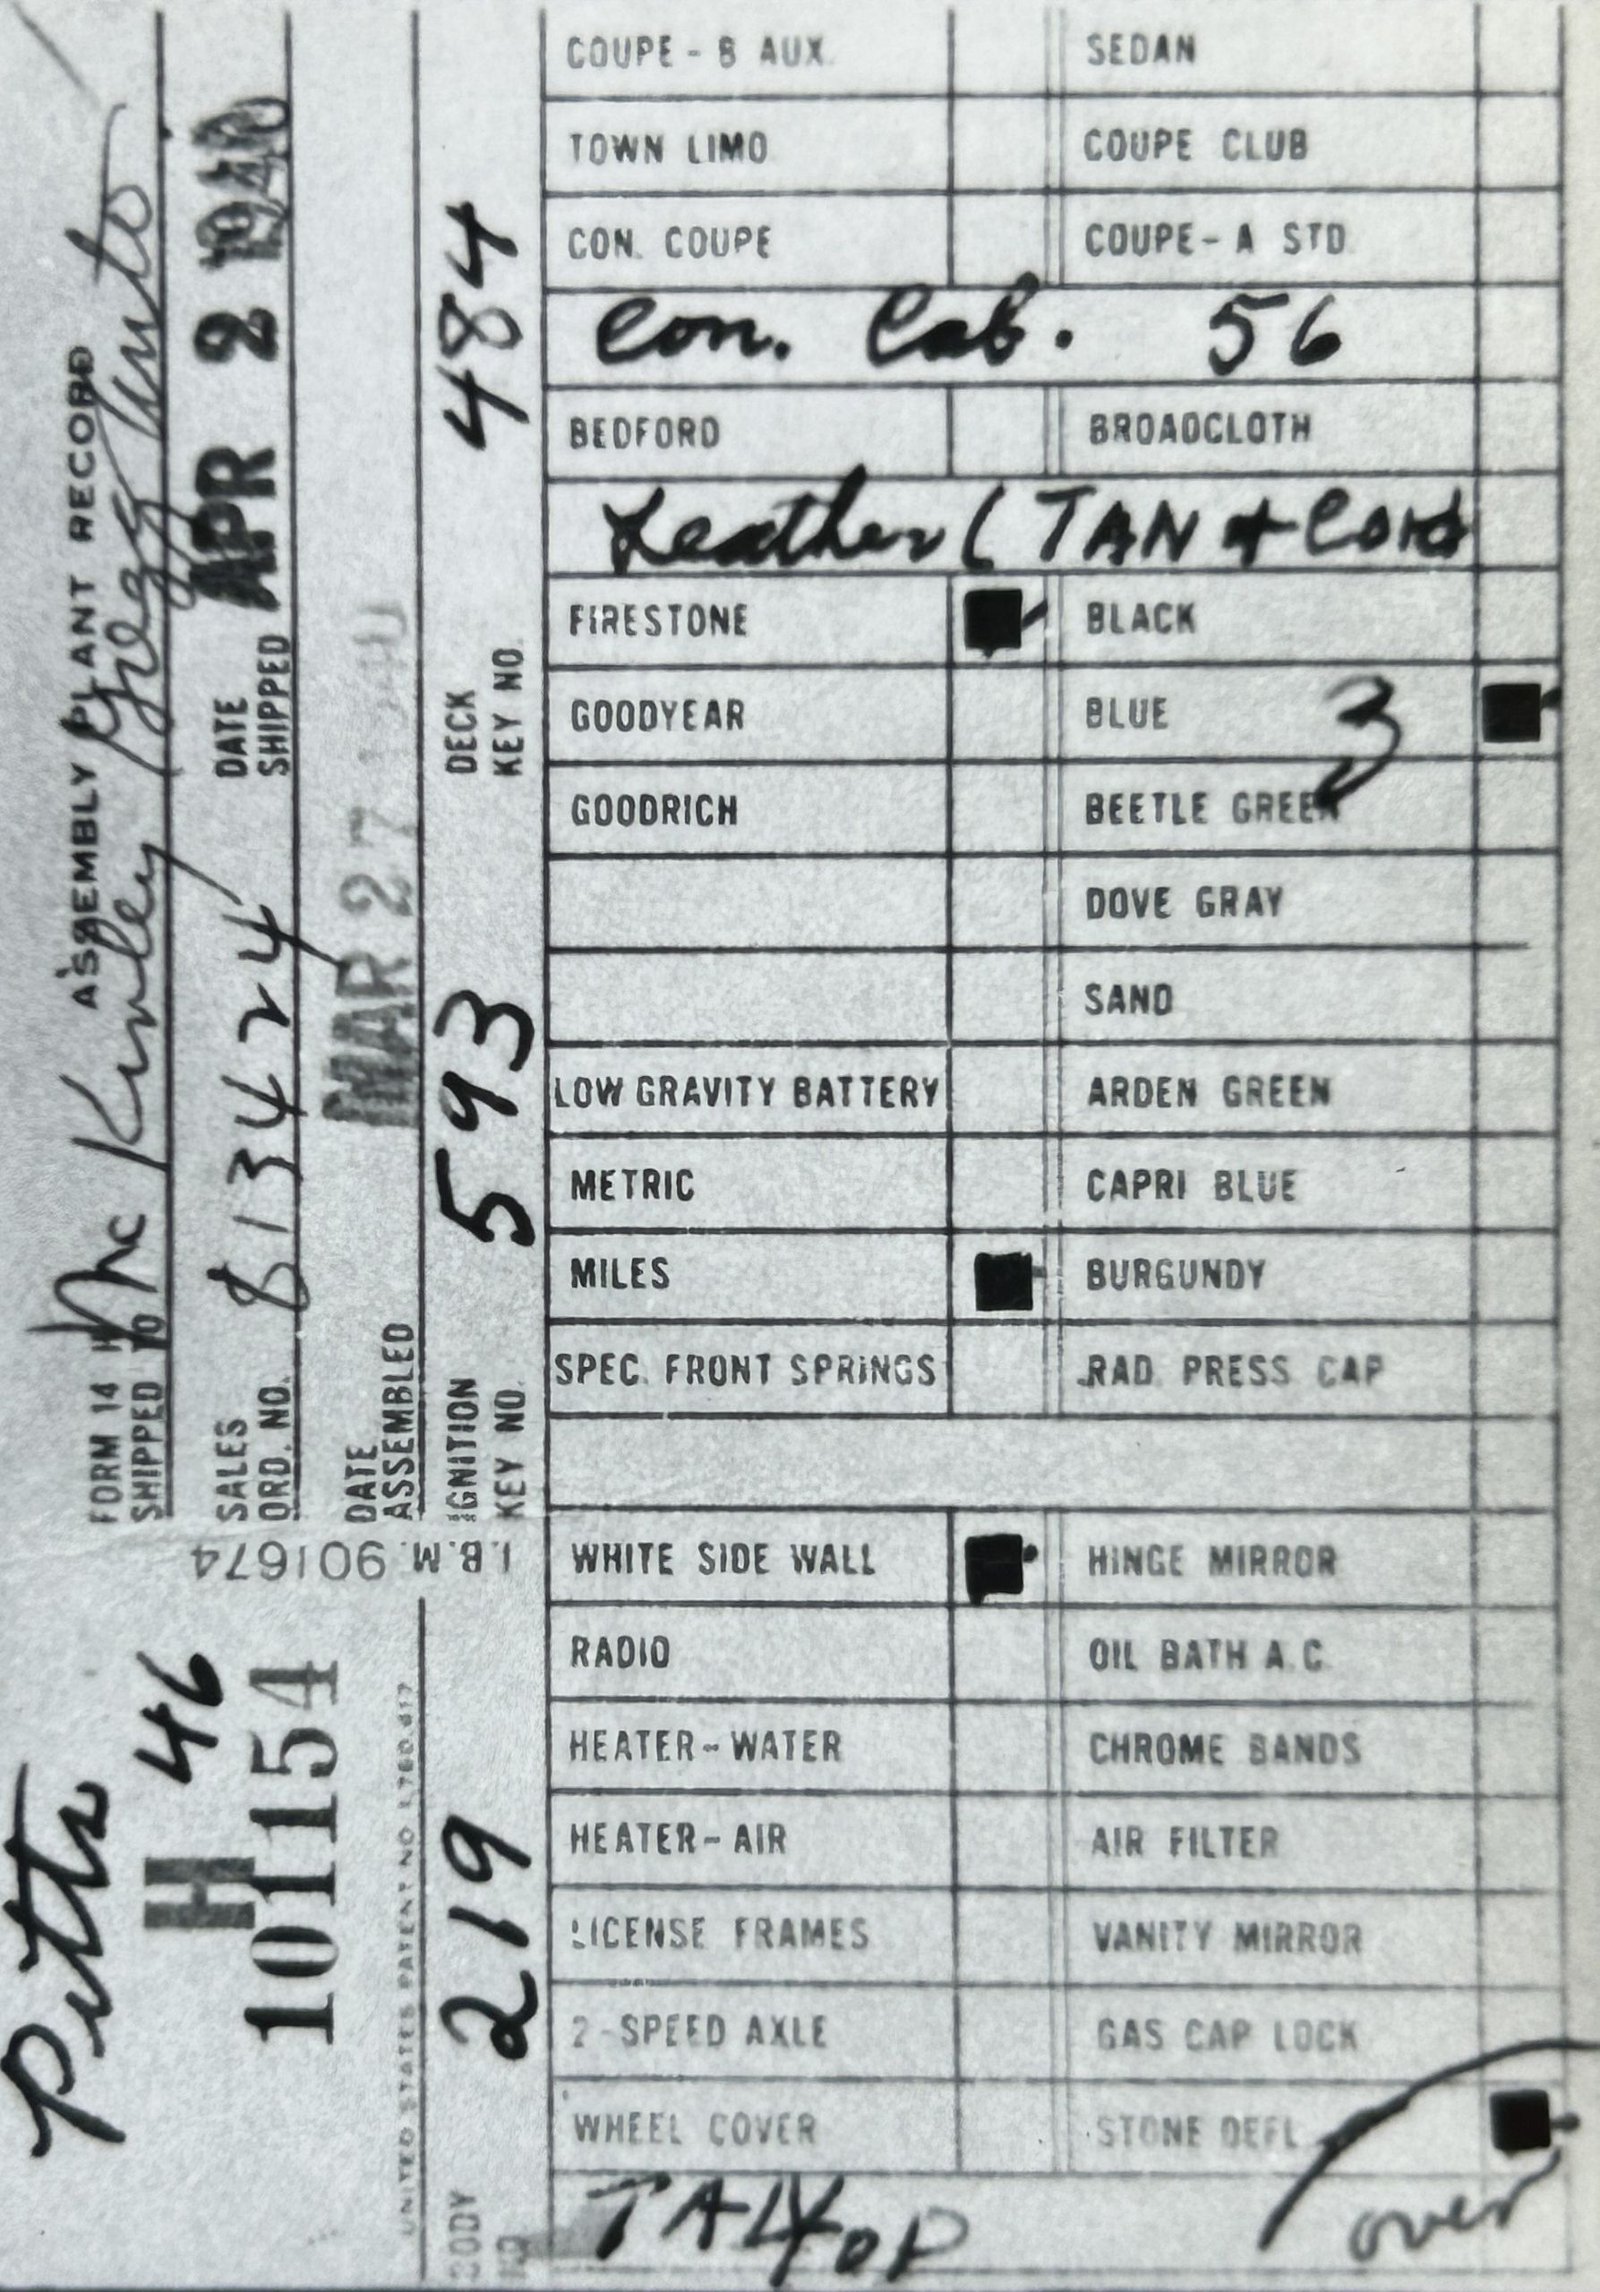 ASSEMBLY PLANT RECORD
FORM 14 H
SHIPPED TO Mc Kinley Gregg Auto
SALES ORD. NO. 813424
DATE SHIPPED APR 2 1940
DATE ASSEMBLED MAR 27 1940
IGNITION KEY NO. 593
DECK KEY NO. 484
I.B.M. 901674
Pitts 46
H
101154
UNITED STATES PATENT NO 1,780,617
BODY NO 219
COUPE - B AUX. SEDAN
TOWN LIMO COUPE CLUB
CON. COUPE COUPE - A STD
Con. Cab. 56
BEDFORD BROADCLOTH
Leather ( TAN &
FIRESTONE BLACK
GOODYEAR BLUE 3
GOODRICH BEETLE GREEN
DOVE GRAY
SAND
LOW GRAVITY BATTERY ARDEN GREEN
METRIC CAPRI BLUE
MILES BURGUNDY
SPEC. FRONT SPRINGS RAD. PRESS CAP
WHITE SIDE WALL HINGE MIRROR
RADIO OIL BATH A.C.
HEATER-WATER CHROME BANDS
HEATER-AIR AIR FILTER
LICENSE FRAMES VANITY MIRROR
2-SPEED AXLE GAS CAP LOCK
WHEEL COVER STONE DEFL
TAN TOP over